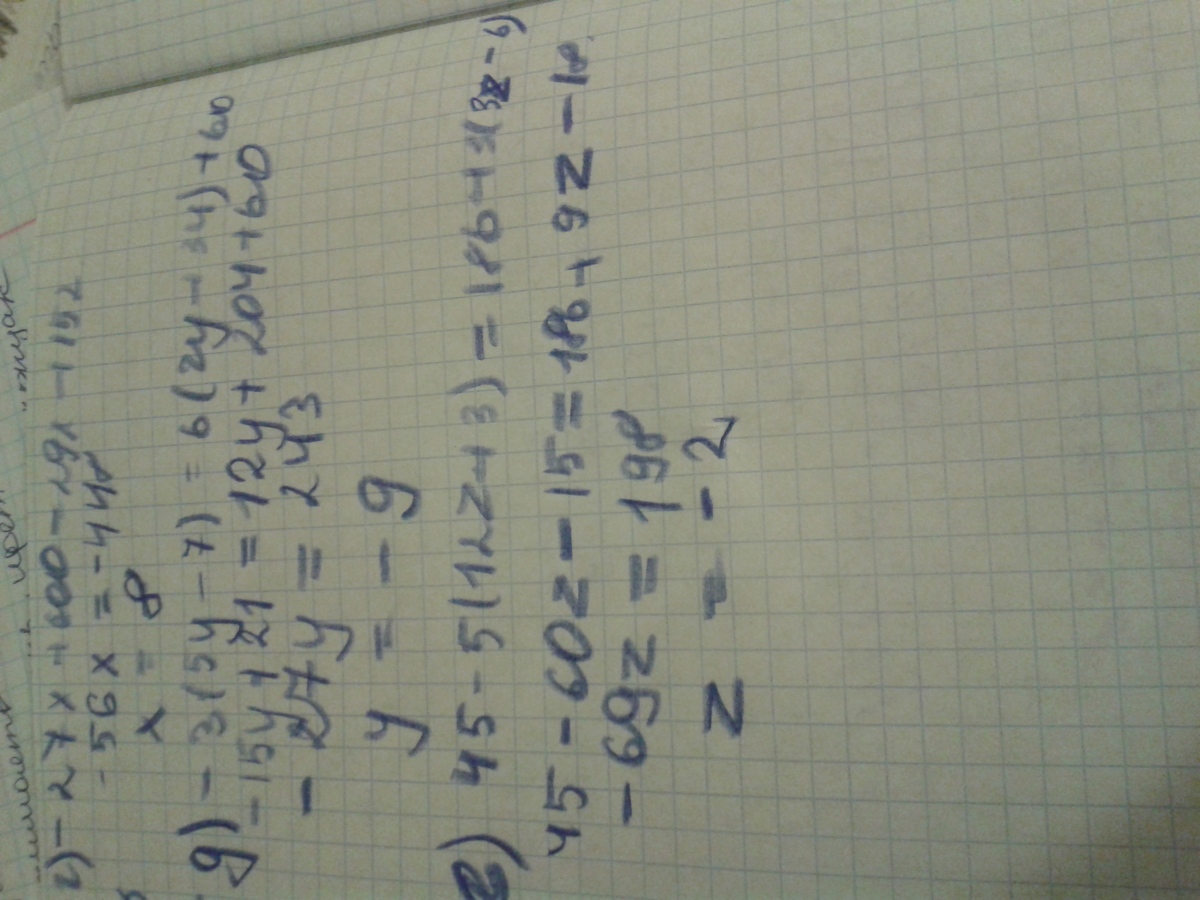 г) - 27x + 600 - 29x - 152
- 56x = - 448
x = 8
g) - 3(5y - 7) = 6(2y + 34) + 60
- 15y + 21 = 12y + 204 + 60
- 27y = 243
y = - 9
z) 45 - 5(12z + 3) = 186 + 3(3z - 6)
45 - 60z - 15 = 186 + 9z - 18
- 69z = 198
z = - 2